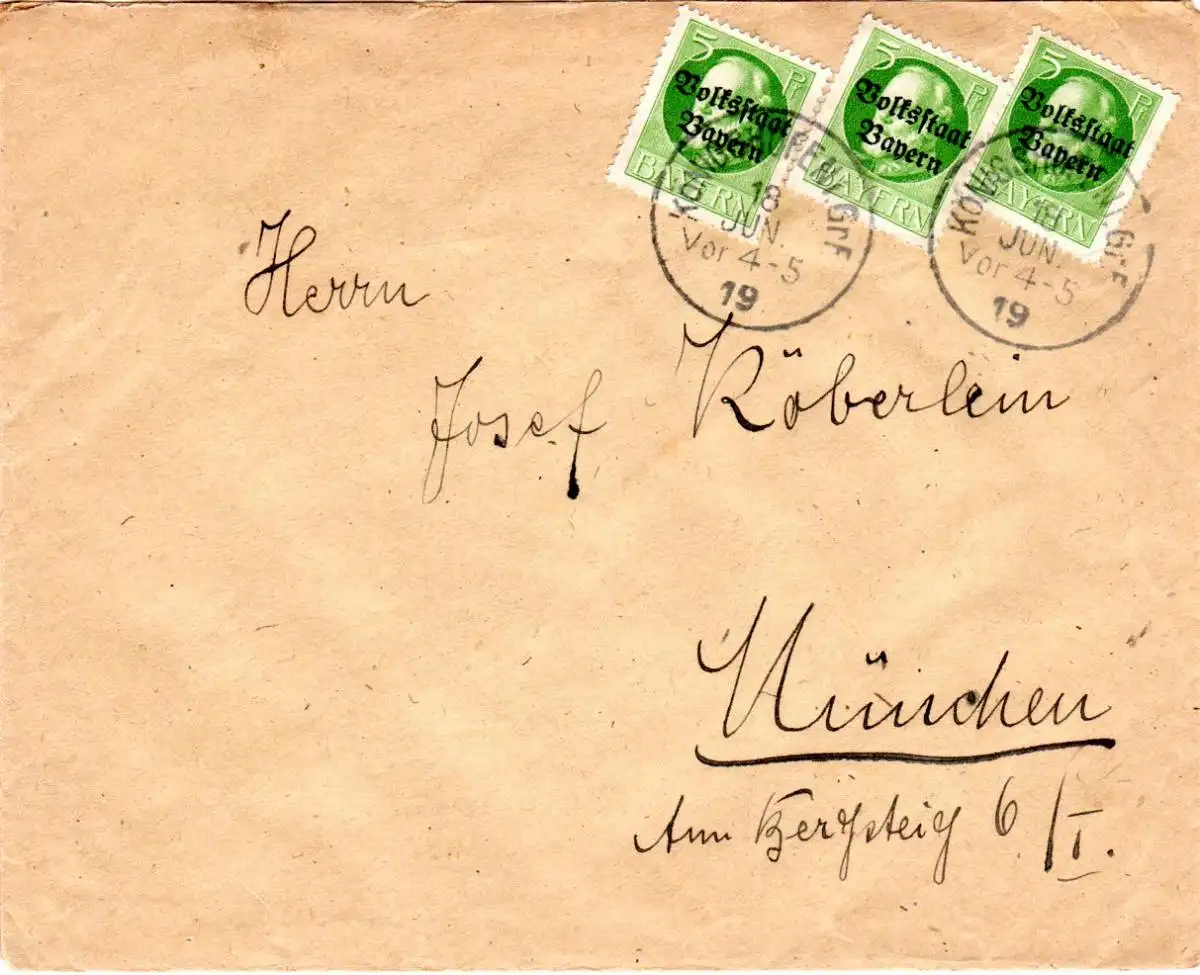 5 Pf 5 Pf 5 Pf
Volksstaat Volksstaat Volksstaat
Bayern Bayern Bayern
BAYERN BAYERN BAYERN
18 JUN. Vor 4-5 19
JUN. Vor 4-5 19
Herrn
Josef Köberlein
München
Am Bergsteig 6/I.